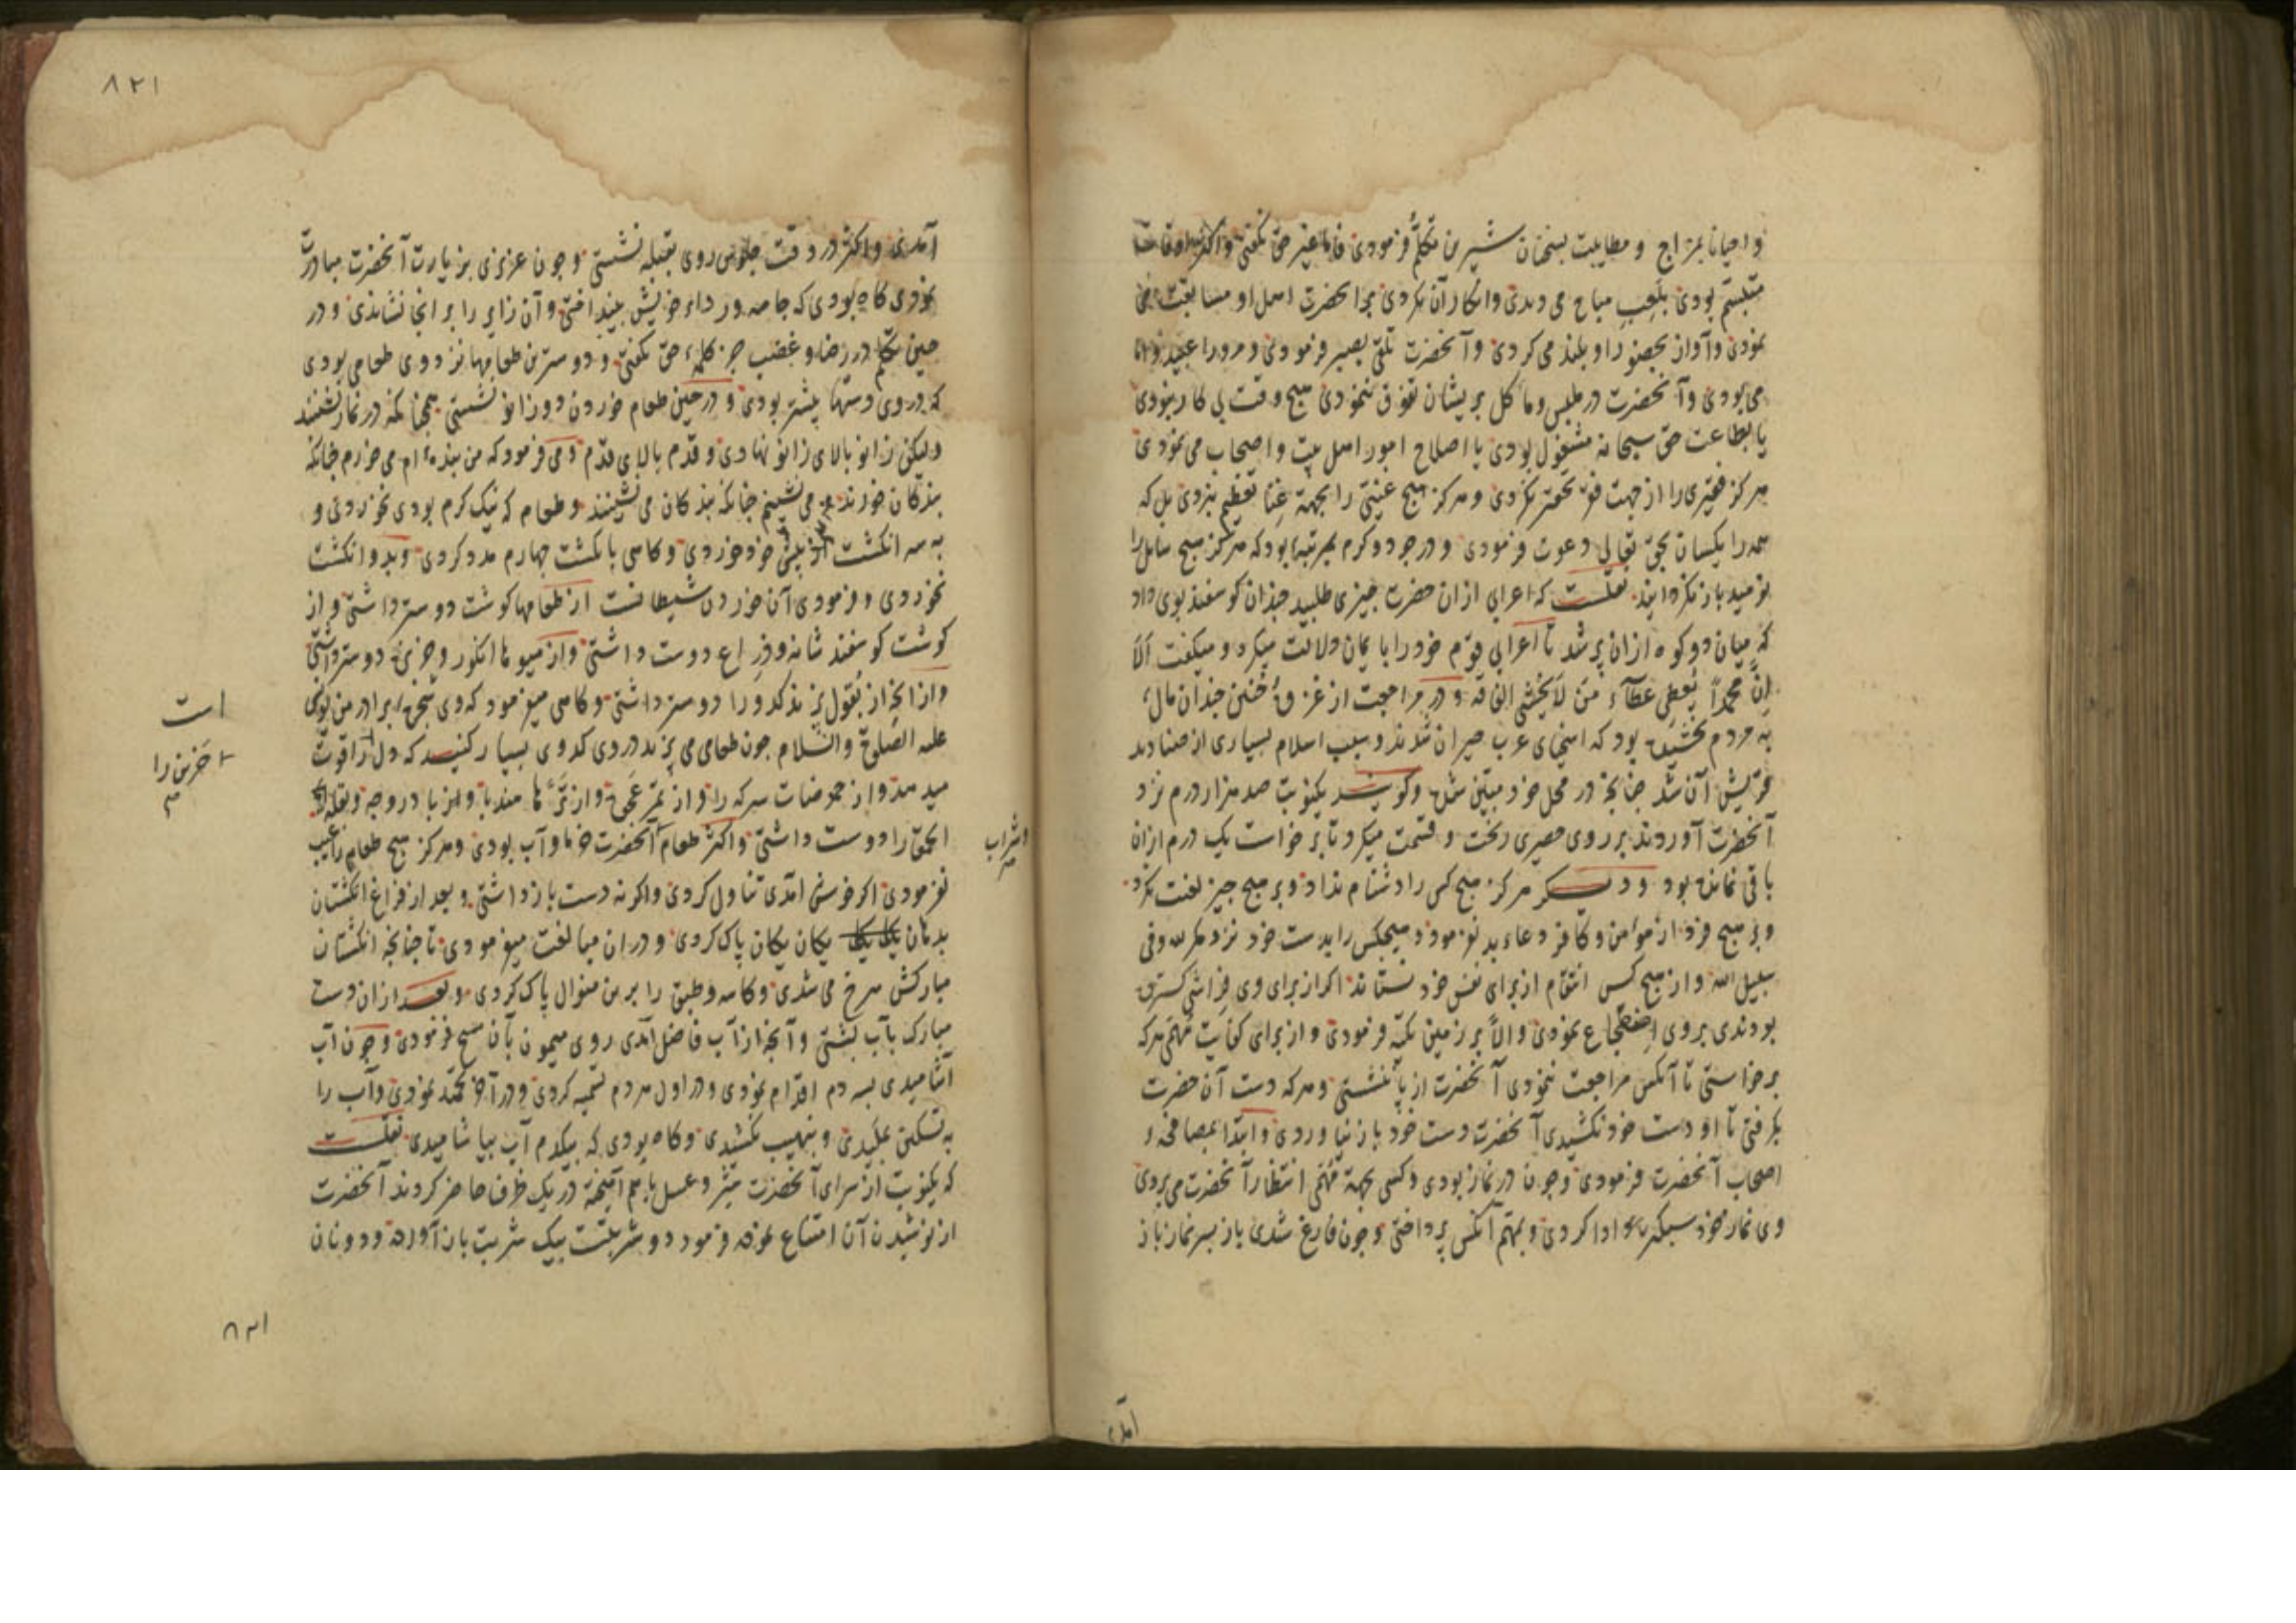 واحیانا بمزاح و مطایبت بسخنان شیرین تکلم فرمودی فاما غیر حق نکفتی و اکثر اوقات
متبسم بودی بلعب مباح می دیدی وانکار آن نکردی بر آنحضرت اهل او مسابقت می
نمودی و آواز بحضور او بلند می کردی و آنحضرت تلقی بصبر فرمودی و مرورا عبید و اما
می بودی و آنحضرت در ملبس و ماکل بر یشان تفوق ننمودی هیچ وقت بی کار نبودی
یا بطاعت حق سبحانه مشغول بودی یا اصلاح امور اهل بیت و اصحاب می نمودی
هرکز فقیری را از جهت فقر تحقیر نکردی و هرکز هیچ غنیی را بجهة غنا تعظیم ننمودی بل که
همه را یکسان بحق تعالی دعوت فرمودی و در جود و کرم بمرتبه بود که هرکز هیچ سایل را
نومید باز نکردانید نقلست که اعرابی ازان حضرت چیزی طلبید چندان کوسفند بوی داد
که میان دو کوه ازان پر شد تا اعرابی قوم خود را بایمان دلالت میکرد و میکفت الا
ان محمدا یعطی عطآء من لا یخشی الفاقه و در مراجعت از غزوهٔ حنین چندان مال
به مردم بخشیده بود که اسخیای عرب حیران شدند و سبب اسلام بسیاری از صنادید
قریش آن شد چنانچه در محل خود مبین شده و کویند یکنوبت صد هزار درم نزد
آنحضرت آوردند بر روی حصیری ریخت و قسمت میکرد تا برخاست یک درم ازان
باقی نمانده بود و دیکر هرکز هیچ کس را دشنام نداد و بر هیچ چیز لعنت نکرد
و بر هیچ فرد از مؤمن و کافر دعاء بد نفرمود و هیچکس را بدست خود نزد مکر لله و فی
سبیل الله و از هیچ کس انتقام از برای نفس خود نستاند اکر از برای وی فراشی کسترده
بودندی بروی اضطجاع نمودی و الا بر زمین تکیه فرمودی و از برای کفایت مهم هرکه
برخاستی تا آنکس مراجعت ننمودی آنحضرت از پا ننشستی و هرکه دست آن حضرت
بکرفتی تا او دست خود نکشیدی آنحضرت دست خود باز نیاوردی و ابتدا بمصافحه و
اصحاب آنحضرت فرمودی و چون در نماز بودی و کسی بجهة مهمی انتظار آنحضرت می بردی
وی نماز خود سبکتر ادا کردی و بمهم آنکس پرداختی و چون فارغ شدی باز بسر نماز باز
آمدی
۸۲۱
آمدی و اکثر در وقت جلوس روی بقبله نشستی و چون عزیزی بزیارت آنحضرت مبادرت
نمودی کاه بودی که جامه و رداء خویش بینداختی و آن زایر را بر انجا نشاندی و در
حین تکلم در رضا و غضب جز کلمهٔ حق نکفتی و دوسترین طعامها نزد وی طعامی بودی
که در وی دستها بیشتر بودی و در حین طعام خوردن دوزانو نشستی همچنانکه در نماز نشینند
ولیکن زانو بالای زانو نهادی و قدم بالای قدم و می فرمود که من بنده ام می خورم چنانکه
بندکان خورند و می نشینم چنانکه بندکان می نشینند و طعام که نیک کرم بودی نخوردی و
به سه انکشت از پیش خود خوردی و کاهی بانکشت چهارم مدد کردی و بدو انکشت
نخوردی و فرمودی آن خوردن شیطانست از طعامها کوشت دوستر داشتی و از
کوشت کوسفند شانه و ذراع دوست داشتی و از میوها انکور و خربزه دوستر داشتی
و از انچه از بقول پزند کدو را دوستر داشتی و کاهی میفرمود که وی شجرهٔ برادر من یونس
علیه الصلوة والسلام چون طعامی می پزید در وی کدوی بسیار کنید که دل را قوت
میدهد و از حموضات سرکه را و از تمر عجوه و از ترها هندبا و باذروج و بقلة
الحمق را دوست داشتی و اکثر طعام آنحضرت خرما و آب بودی و هرکز هیچ طعام را عیب
نفرمودی اکر خوش امدی تناول کردی و اکرنه دست باز داشتی و بعد از فراغ انکشتان
بدهان یکان یکان پاک کردی و دران مبالغت میفرمودی تا چنانچه انکشتان
مبارکش سرخ می شدی و کاسه و طبق را برین منوال پاک کردی و بعد ازان دست
مبارک بآب بشستی و آنچه از آب فاضل آمدی روی میمون بآن مسح فرمودی و چون آب
آشامیدی بسه دم اقدام نمودی و در اول هر دم تسمیه کردی و در آخر تحمید نمودی و آب را
به تسکین بمکیدی و بنهیب نکشیدی و کاه بودی که بیکدم آب بیاشامیدی نقلست
که یکنوبت از برای آنحضرت شیر و عسل باهم آمیخته در یک ظرف حاضر کردند آنحضرت
از نوشیدن آن امتناع نموده فرمود دو شربتست بیک شربت باز آورده و دو نان
است
خربزه را
و شراب
۸۲۱